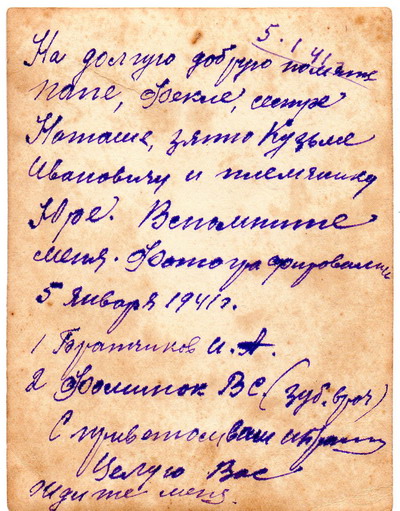 5. 1 41.
На долгую добрую память
папе, Фекле, сестре
Наташе, зятю Кузьме
Ивановичу и племяннику
Юре. Вспомните
меня. Фотографировались
5 января 1941 г.
1 Братчиков И. А.
2 Фоминок В С. (зуб. врач)
С приветом
Целую Вас
ждите меня.